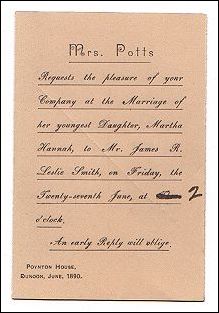 Mrs. Potts
Requests the pleasure of your
Company at the Marriage of
her youngest Daughter, Martha
Hannah, to Mr. James R.
Leslie Smith, on Friday, the
Twenty-seventh June, at 2
o'clock.
An early Reply will oblige.
POYNTON HOUSE,
DUNOON, JUNE, 1890.